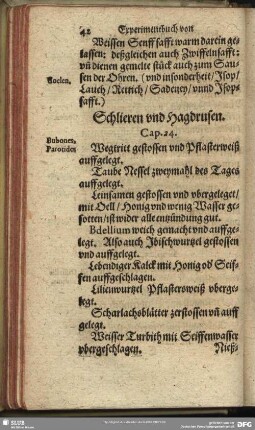 42 Experimentbuch von
Weissen Senff safft warm darein ge-
lassen: deßgleichen auch Zwiffelnsafft:
vñ dienen gemelte stück auch zum Sau-
sen der Ohren. (vnd insonderheit/ Isop/
Lauch/ Rettich/ Sadeney/ vnnd Isop-
safft.)
Schlieren vnd Hagdrusen.
Cap. 24.
Bubones,
Parotides
Wegtritt gestossen vnd Pflasterweiß
auffgelegt.
Taube Nessel zweymahl des Tages
auffgelegt.
Leinsamen gestossen vnd vbergeleget/
mit Oell/ Honig vnd wenig Wasser ge-
sotten/ ist wider alle entzündung gut.
Bdellium weich gemacht vnd auffge-
legt. Also auch Ibischwurtzel gestossen
vnd auffgelegt.
Lebendiger Kalck mit Honig od̕ Seif-
fen auffgeschlagen.
Lilienwurtzel Pflastersweiß vberge-
legt.
Scharlachsblätter zerstossen vñ auff
gelegt.
Weisser Turbith mit Seiffenwasser
vbergeschlagen.
Nieß-
SLUB
DFG